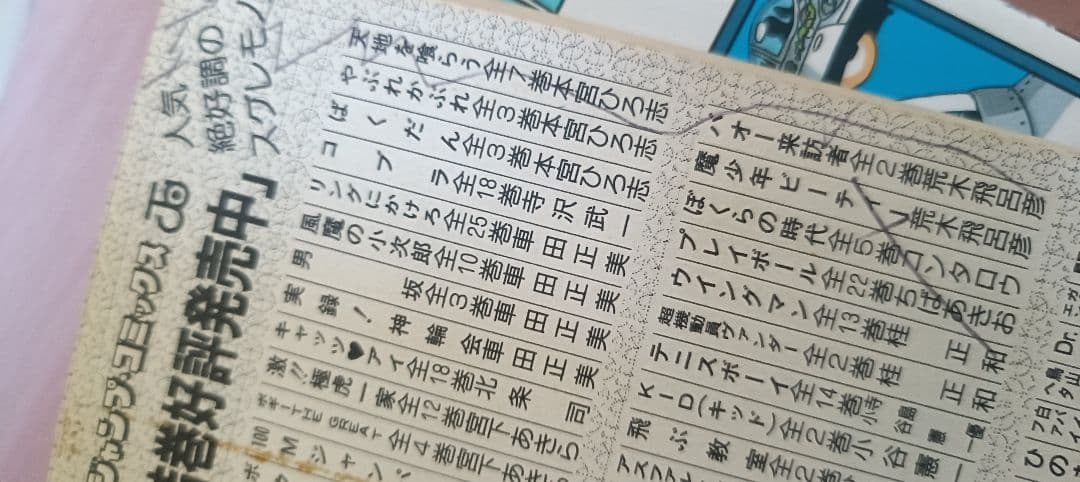 人気
絶好調の
スグレモノ
ジャンプ・コミックス
巻好評発売中」
天地を喰らう全7巻本宮ひろ志
やぶれかぶれ全3巻本宮ひろ志
ばくだん全3巻本宮ひろ志
コブラ全18巻寺沢武一
リングにかけろ全25巻車田正美
風魔の小次郎全10巻車田正美
男坂全3巻車田正美
実録!神輪会車田正美
キャッツ♥アイ全18巻北条司
激!!極虎一家全12巻宮下あきら
ボギーTHE GREAT全4巻宮下あき
100Mジャンパ
バオー来訪者全2巻荒木飛呂彦
魔少年ビーティー荒木飛呂彦
ぼくらの時代全5巻コンタロウ
プレイボール全22巻ちばあきお
ウイングマン全13巻桂正和
超機動員ヴァンダー全2巻桂正和
テニスボーイ全14巻寺島優小谷憲一
KID(キッド)全2巻小谷憲一
飛ぶ教室全2巻
アスファ
Dr.
ひの